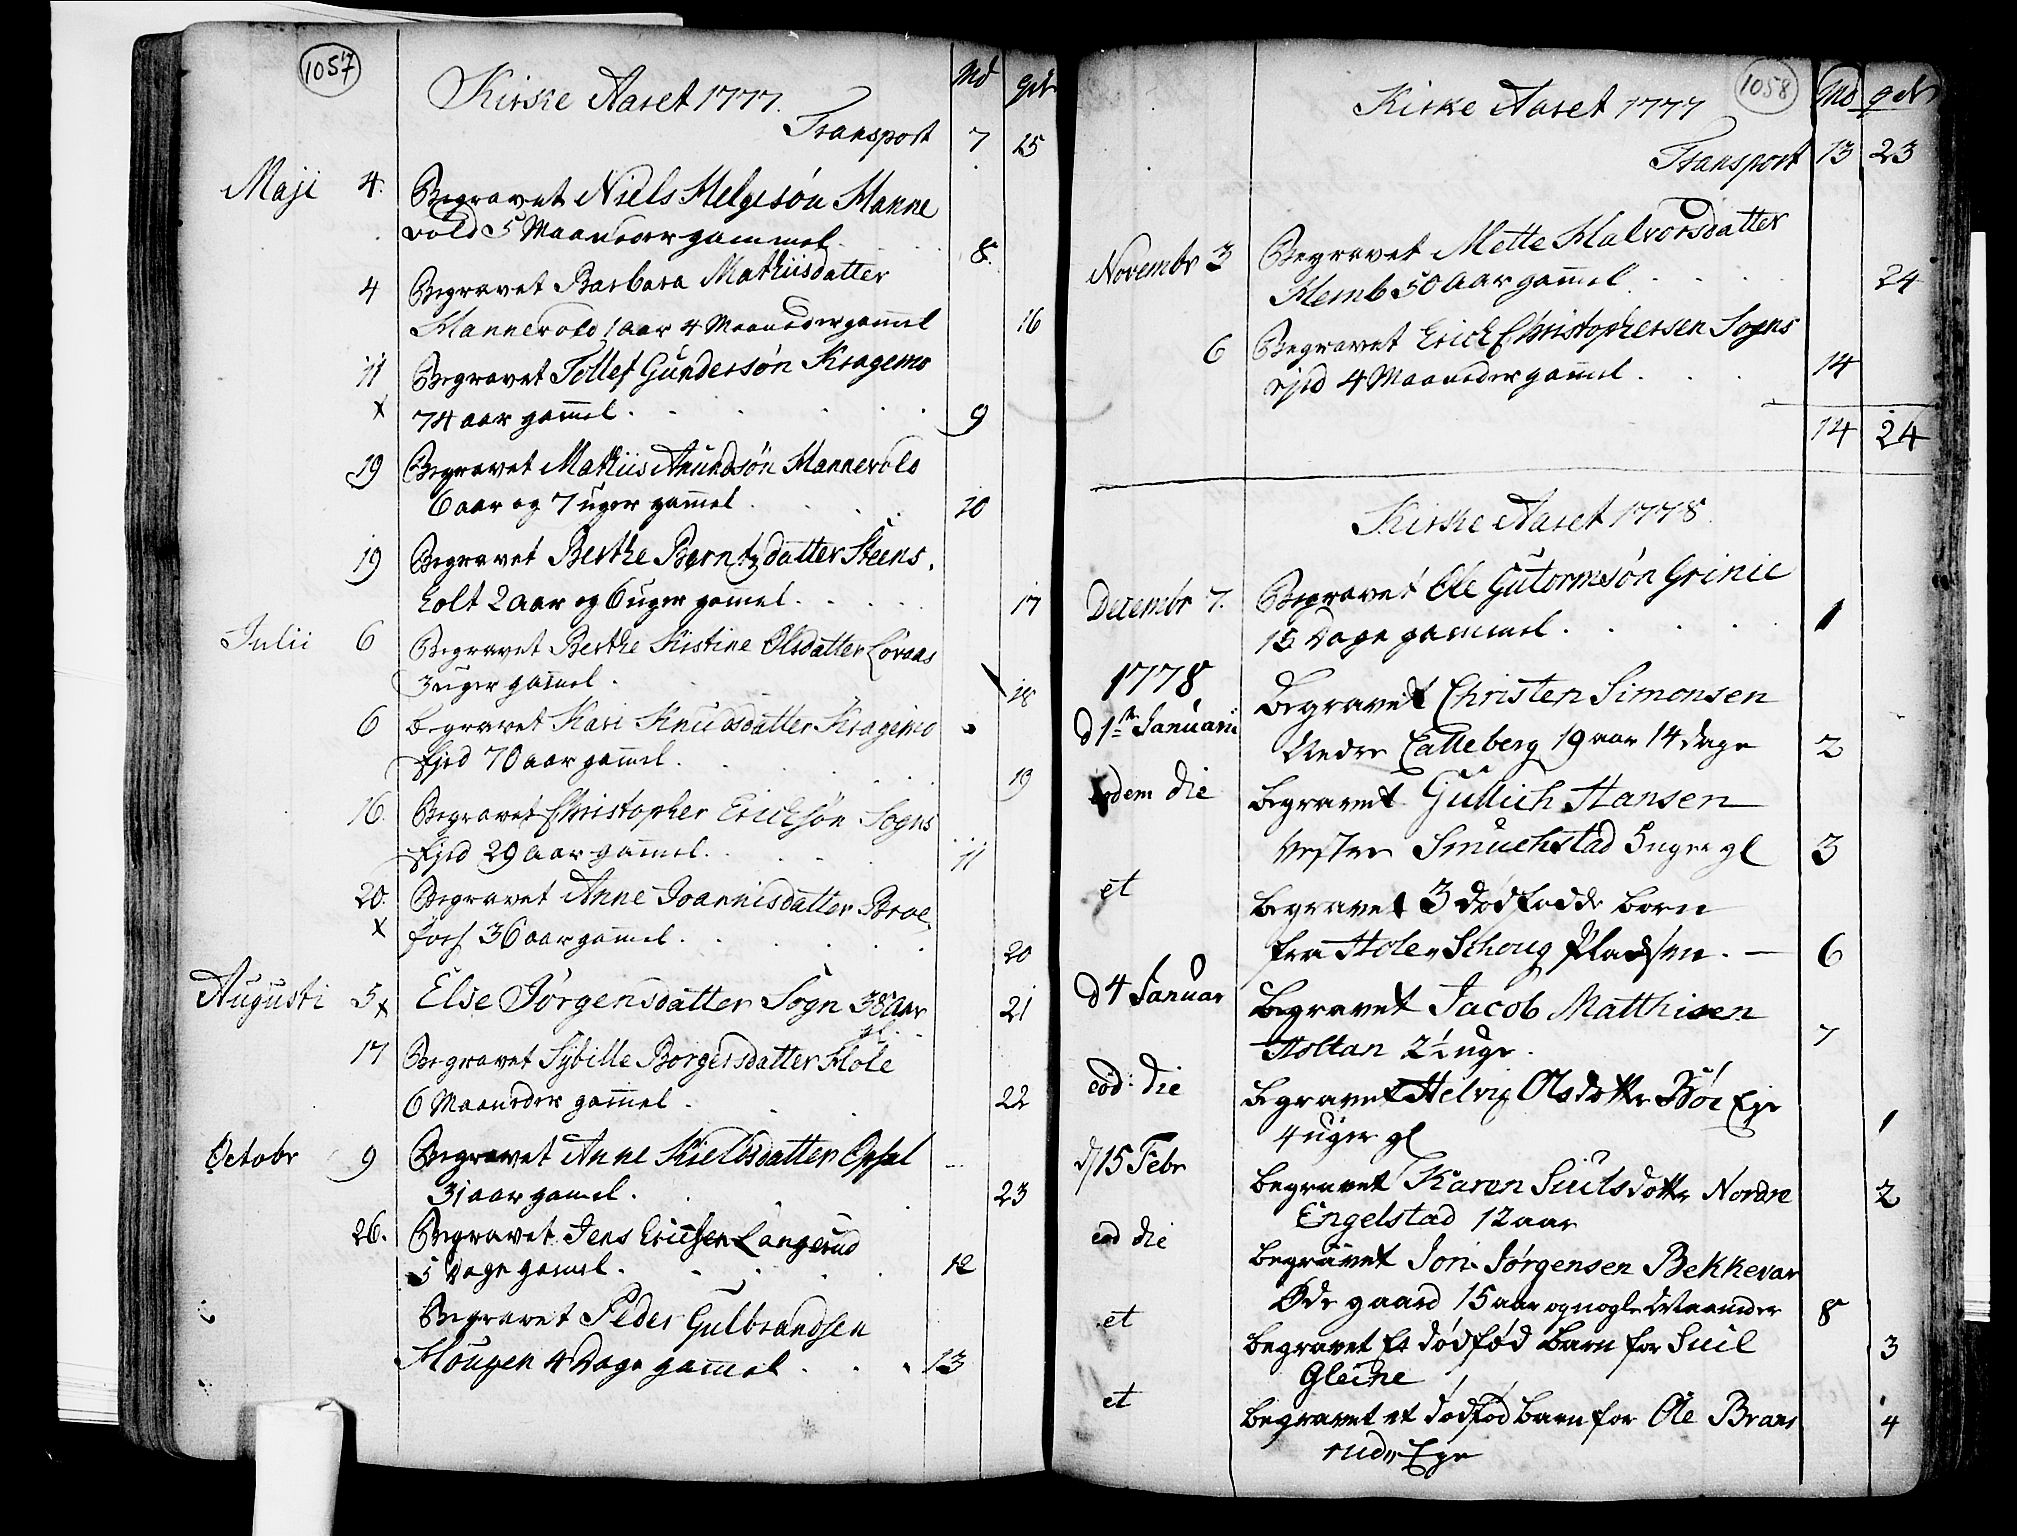 1057
Kirke Aaret 1777.
Md
qdr
Transport 7 15
Maji 4. Begravet Niels Helgesøn Hanne
vold 5 Maaneder gammel. 8.
4 Begravet Barbara Mathiisdatter
Hannevold 1 aar 4 Maaneder gam̄el 16
11 Begravet Tollef Gundersøn Kragemo
x 74 aar gam̄el. 9
19 Begravet Mathiis Anundsøn Hannevold
6 aar og 7 uger gam̄el 10
19 Begravet Berthe Berntzdatter Steens,
holt 2 aar og 6 uger gam̄el. 17
Julii 6 Begravet Berthe Kistine Olsdatter Loraas
3 uger gam̄el. 18
6 begravet Kari Knudsdatter Kragemo
Ejed 70 aar gam̄el. 19
16. Begravet Christopher Erichsøn Sogns
Ejed 29 aar gam̄el. 11
20. Begravet Anne Joannisdatter Broe,
x foss 36 aar gam̄el. 20
Augusti 5 x Else Jørgensdatter Sogn 38 aar 21
gl.
17 Begravet Sybille Borgersdatter Hole
6 Maaneder gam̄el. 22
Octobr 9 Begravet Anne Kieldsdatter Opsal
31 aar gam̄el. 23
26. Begravet Jens Erichsen Langerud
5 Dage gam̄el. 12
Begravet Peder Gulbrandsen
Hougen 4 Dage gam̄el. 13
1058
Kirke Aaret 1777
Md
qdr
Transport 13 23
Novembr 3 Begravet Mette Halvorsdatter
Hemb 50 Aar gam̄el. 24
6 Begravet Erich Christophersen Sogns
ejed 4 Maaneder gam̄el. 14
14 24
Kirke Aaret 1778.
Decembr 7. Begravet Ole Gutormsøn Grinie
15 Dage gammel. 1
1778
d 1ste Januarii Begravet Christen Simonsen
Nedre Calleberg 19 aar 14 dage 2
eodem die begravet Gullich Hansen
Vestre Smuchstad 5 uger gl 3
et begravet 3 dødfødde børn
fra Hole, Schoug Pladsen. 6
d 4 Januar Begravet Jacob Matthisen
Holtan 2½ uge. 7
eod: die begravet Helvig Olsdotter Bøe Eje
4 uger gl 1
d 15 Febr begravet Karen Siulsdotter Nordre
Engelstad 12 aar 2
eod die begravet Jon Jørgensen Bekkevar
Ødegaard 15 aar og nogle Maaneder 8
et begravet et dødfød barn for Siul
Gleine 3
et begravet et dødfød barn for Ole Braas
rudr Eje 4